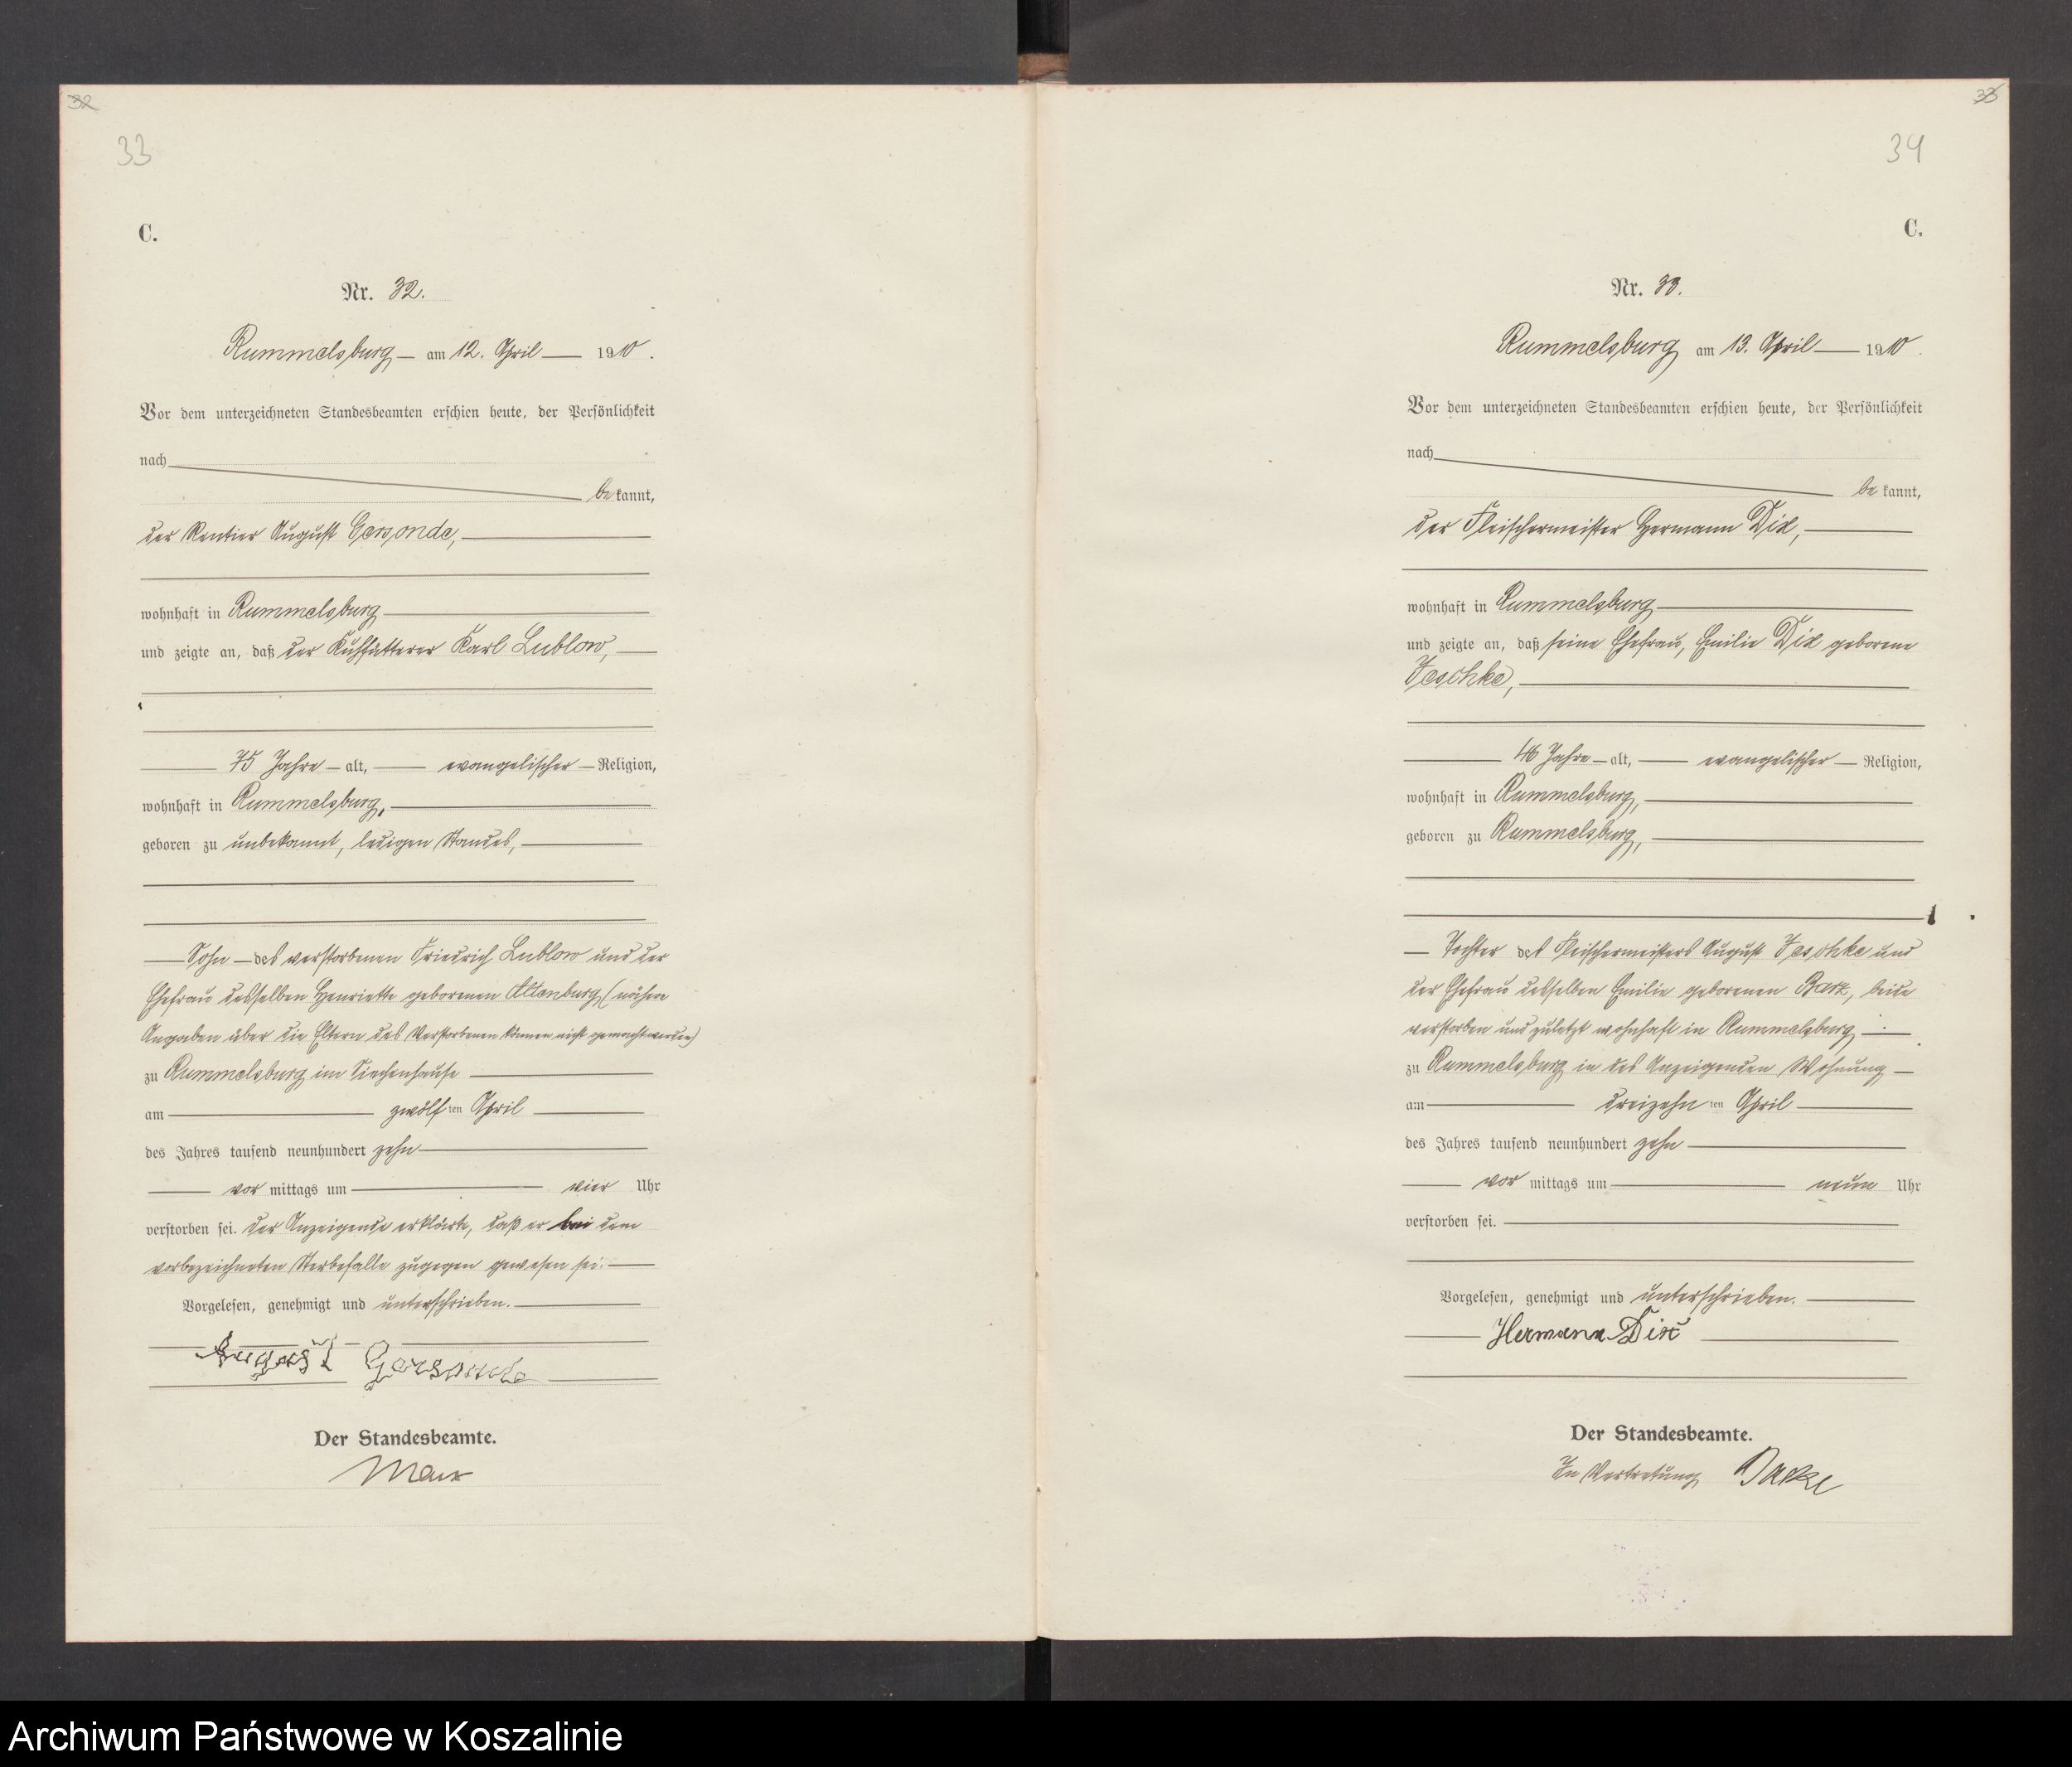 32
33
C.
Nr. 32.
Rummelsburg am 12. April 1910.
Vor dem unterzeichneten Standesbeamten erschien heute, der Persönlichkeit
nach
be kannt,
der Rentier August Gersonde,
wohnhaft in Rummelsburg
und zeigte an, daß der Karl Lublow,
75 Jahre alt, evangelischer Religion,
wohnhaft in Rummelsburg,
geboren zu unbekannt, ledigen Standes,
Sohn des verstorbenen Friedrich Lublow und der
Ehefrau desselben Henriette geborenen Altenburg (nähere
Angaben über die Eltern des Verstorbenen können nicht gemacht werden)
zu Rummelsburg im Siechenhause
am zwölf ten April
des Jahres tausend neunhundert zehn
vor mittags um vier Uhr
verstorben sei. Der Anzeigende erklärte, daß er bei dem
vorbezeichneten Sterbefalle zugegen gewesen sei.
Vorgelesen, genehmigt und unterschrieben.
August Gersonde
Der Standesbeamte.
33
34
C.
Nr. 33.
Rummelsburg am 13. April 1910.
Vor dem unterzeichneten Standesbeamten erschien heute, der Persönlichkeit
nach
be kannt,
der Fleischermeister Hermann Dix,
wohnhaft in Rummelsburg
und zeigte an, daß seine Ehefrau, Emilie Dix geborene
Jeschke,
46 Jahre alt, evangelischer Religion,
wohnhaft in Rummelsburg,
geboren zu Rummelsburg,
Tochter des Fleischermeisters August Jeschke und
der Ehefrau desselben Emilie geborenen Bark, beide
verstorben und zuletzt wohnhaft in Rummelsburg
zu Rummelsburg in des Anzeigenden Wohnung
am dreizehn ten April
des Jahres tausend neunhundert zehn
vor mittags um neun Uhr
verstorben sei.
Vorgelesen, genehmigt und unterschrieben.
Hermann Dix
Der Standesbeamte.
In Vertretung
Archiwum Państwowe w Koszalinie